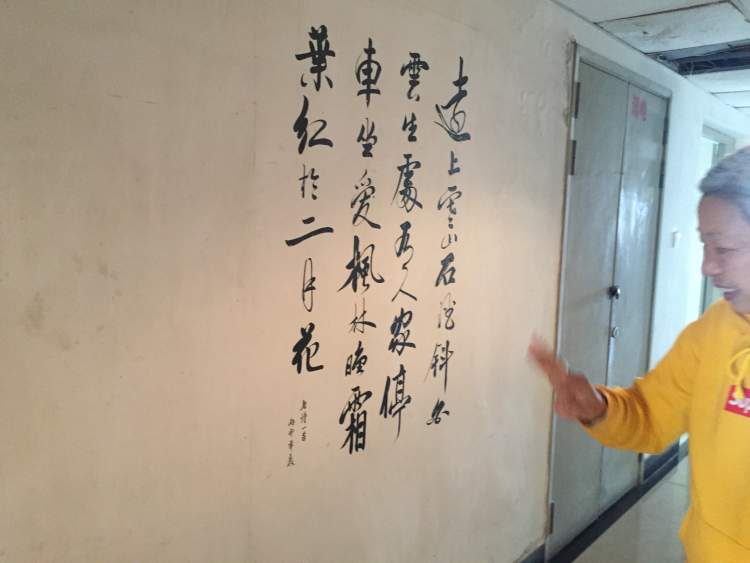 遠上寒山石径斜白
雲生處有人家停
車坐愛楓林晚霜
葉红於二月花
诗一首